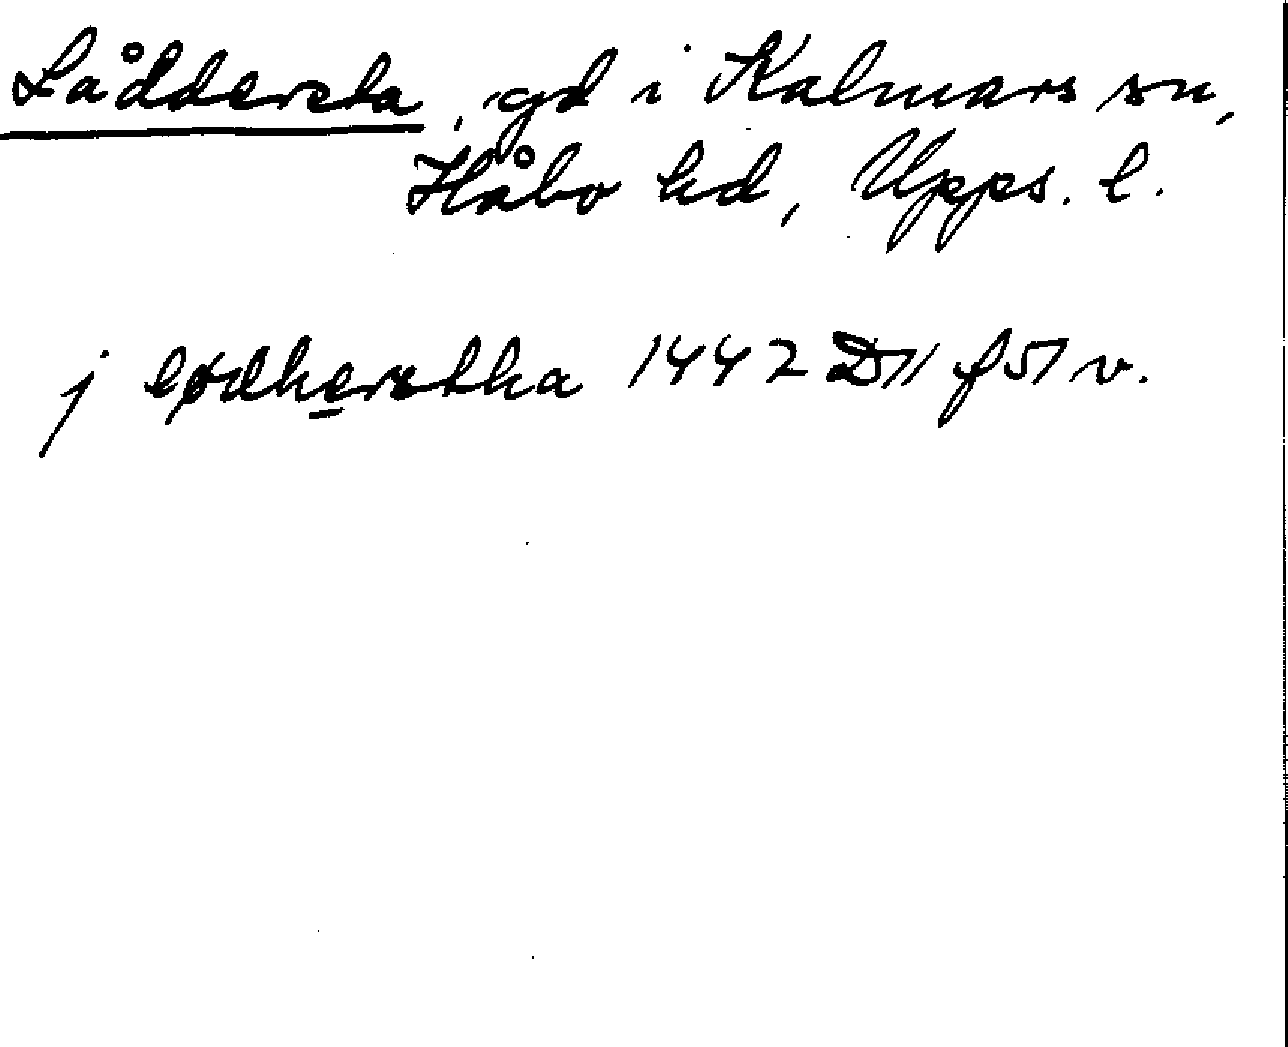 Låddersta, gd i Kalmars sn,
Håbo hd, Upps. l.
j lødherstha 1442 D11 f 51 v.